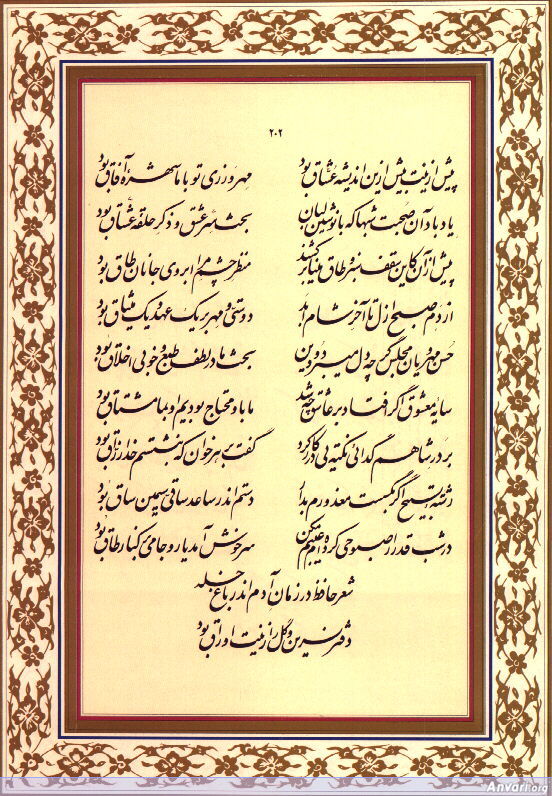 ۲۰۲
پیش ازینت بیش ازین اندیشه عشاق بود مهرورزی تو با ما شهره آفاق بود
یاد باد آن صحبت شبها که با نوشین لبان بحث سر عشق و ذکر حلقه عشاق بود
پیش از آن کاین سقف سبز و طاق مینا برکشند منظر چشم مرا ابروی جانان طاق بود
از دم صبح ازل تا آخر شام ابد دوستی و مهر بر یک عهد و یک میثاق بود
حسن مهرویان مجلس گر چه دل میبرد و دین بحث ما در لطف طبع و خوبی اخلاق بود
سایه معشوق اگر افتاد بر عاشق چه شد ما باو محتاج بودیم او بما مشتاق بود
بر در شاهم گدائی نکته یی در کار کرد گفت بر هر خوان که بنشستم خدا رزاق بود
رشته تسبیح اگر بگسست معذورم بدار دستم اندر ساعد ساقی سیمین ساق بود
در شب قدر ار صبوحی کرده ام عیبم مکن سرخوش آمد یار و جامی بر کنار طاق بود
شعر حافظ در زمان آدم اندر باغ خلد
دفتر نسرین و گل را زینت اوراق بود
Anvari.org